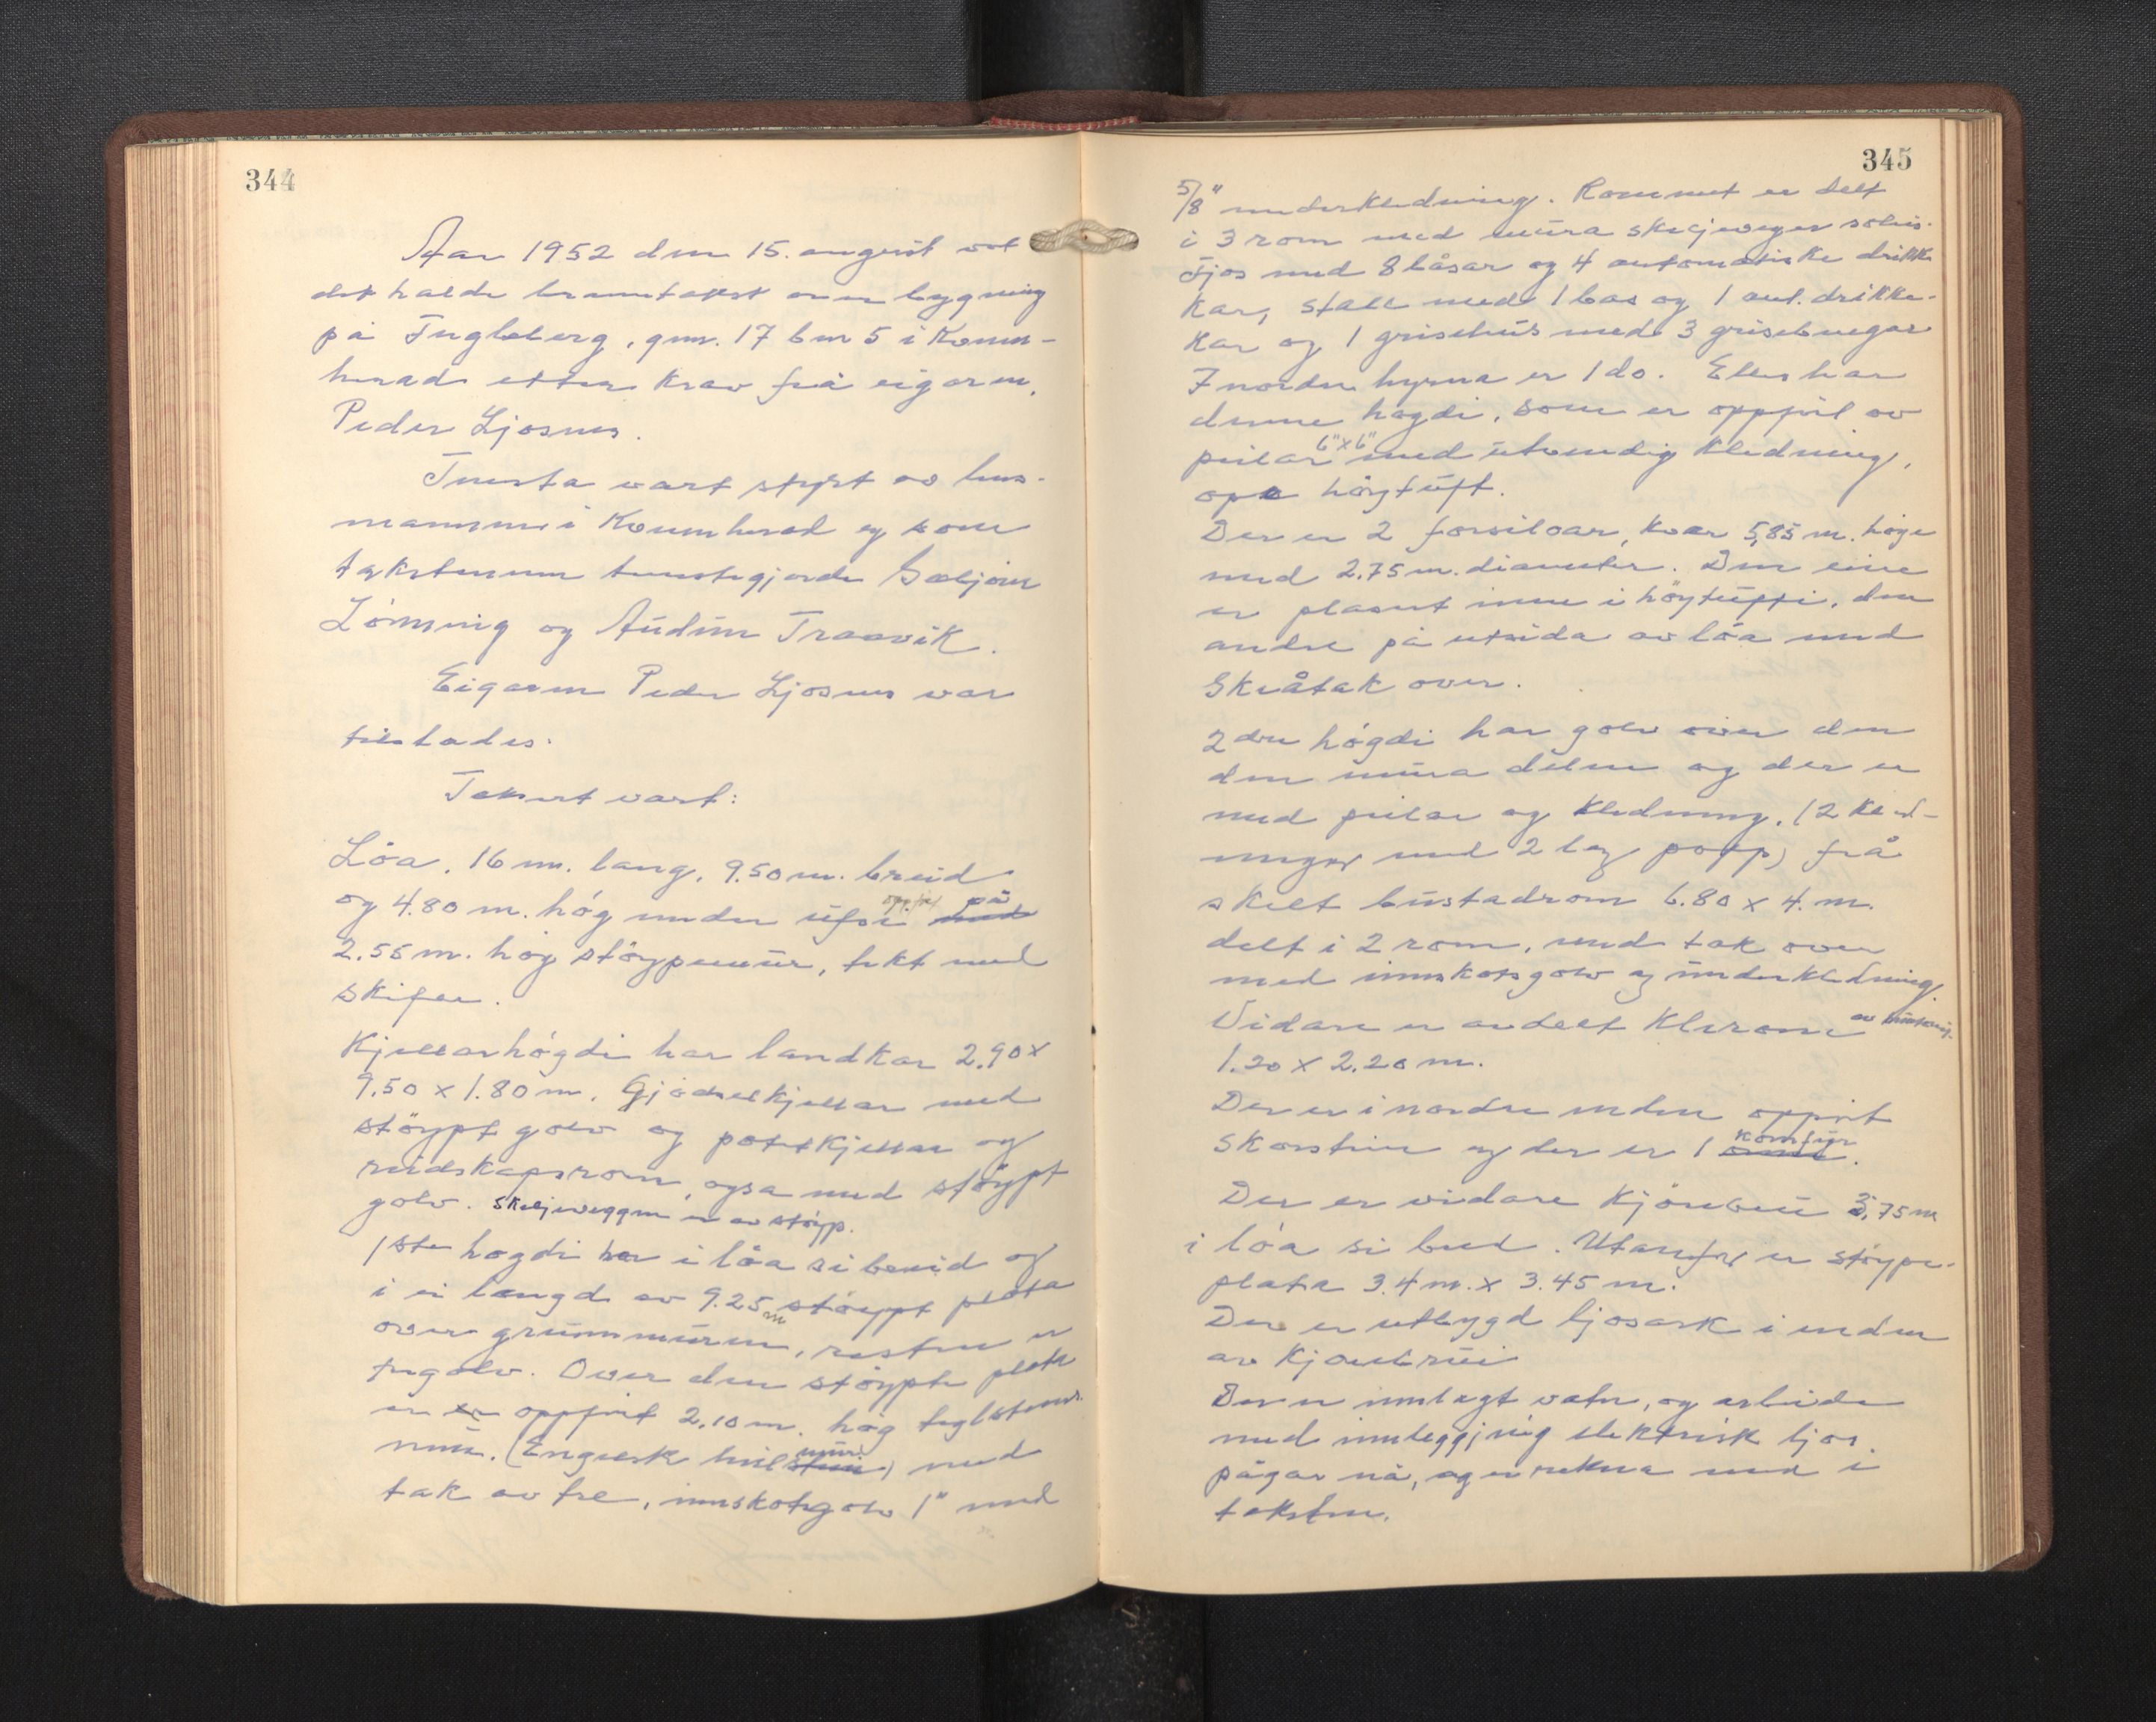 344
Aar 1952 den 15. august vart
det halde branntakst over bygning
på Fugleberg, gnr. 17 bnr 5 i Kvinn-
herad etter krav frå eigaren,
Peder Ljosnes.
Tenesta vart styrt av lens-
mannen i Kvinnherad og som
takstmenn tenestegjorde Sæbjörn
Lönning og Audun Traavik.
Eigaren Peder Ljosnes var
tilstades.
Taksert vart:
Löa, 16 m. lang, 9.50 m. breid
og 4.80 m. hóg under ufsi oppfört på med
2.55 m. hög stöypemur, tekt med
skifer.
Kjellarhógdi har landkar 2.90 x
9.50 x 1.80 m. Gjödselkjellar med
stöypt golv og potetkjellar og
reidskapsrom, ogsa med stöypt
golv. Skeljeveggen er av stöyp.
1ste hogdi har i löa si breid og
i ei lengd av 9.25 m stöypt plata
over grunnmuren, resten er
tregolv. Over den stöypte plata
er er oppfört 2.10 m. hög teglsteins-
mur. (Engelsk hulmur stein) med
tak av tre, innskotsgolv 1" med
345
5/8" underkledning. Rommet er delt
i 3 rom med mura skeljevegger soleis:
Fjos med 8 båsar og 4 automatiske drikke
kar, stall med 1 bas og 1 aut. drikke-
kar og 1 grisehus med 3 grisebingar
I nordre hyrna er 1 do. Elles har
denne hogdi, som er oppfört av
peilar 6"x6" med utvendig kledning,
ope höytuft.
Der er 2 forsiloar, kvar 5,85 m. höge
med 2.75 m. diameter. Den eine
er plasert inne i höytufti, den
andre på utsida av löa med
Skråtak over.
2dre högdi har golv over den
den mura delen og der er
med peilar og kledning, (2 kled-
ningar med 2 lag papp) frå
skilt bustadrom 6.80 x 4. m.
delt i 2 rom, med tak over
med innskotsgolv og underkledning.
Vidare er avdelt klerom av
1.20 x 2.20 m.
Der er i nordre enden oppfört
Skorstein og der er 1 komfyr omn.
Der er vidare kjörebru 3,75 m
i löa si breid. Utanfor er stöype-
plata 3.4 m. x 3.45 m.
Der er utbygd ljosark i enden
av kjörebrui
Der er innlagt vatn, og arbeide
med innleggjing elektrisk ljos.
pågar nå, og er rekna med i
taksten.